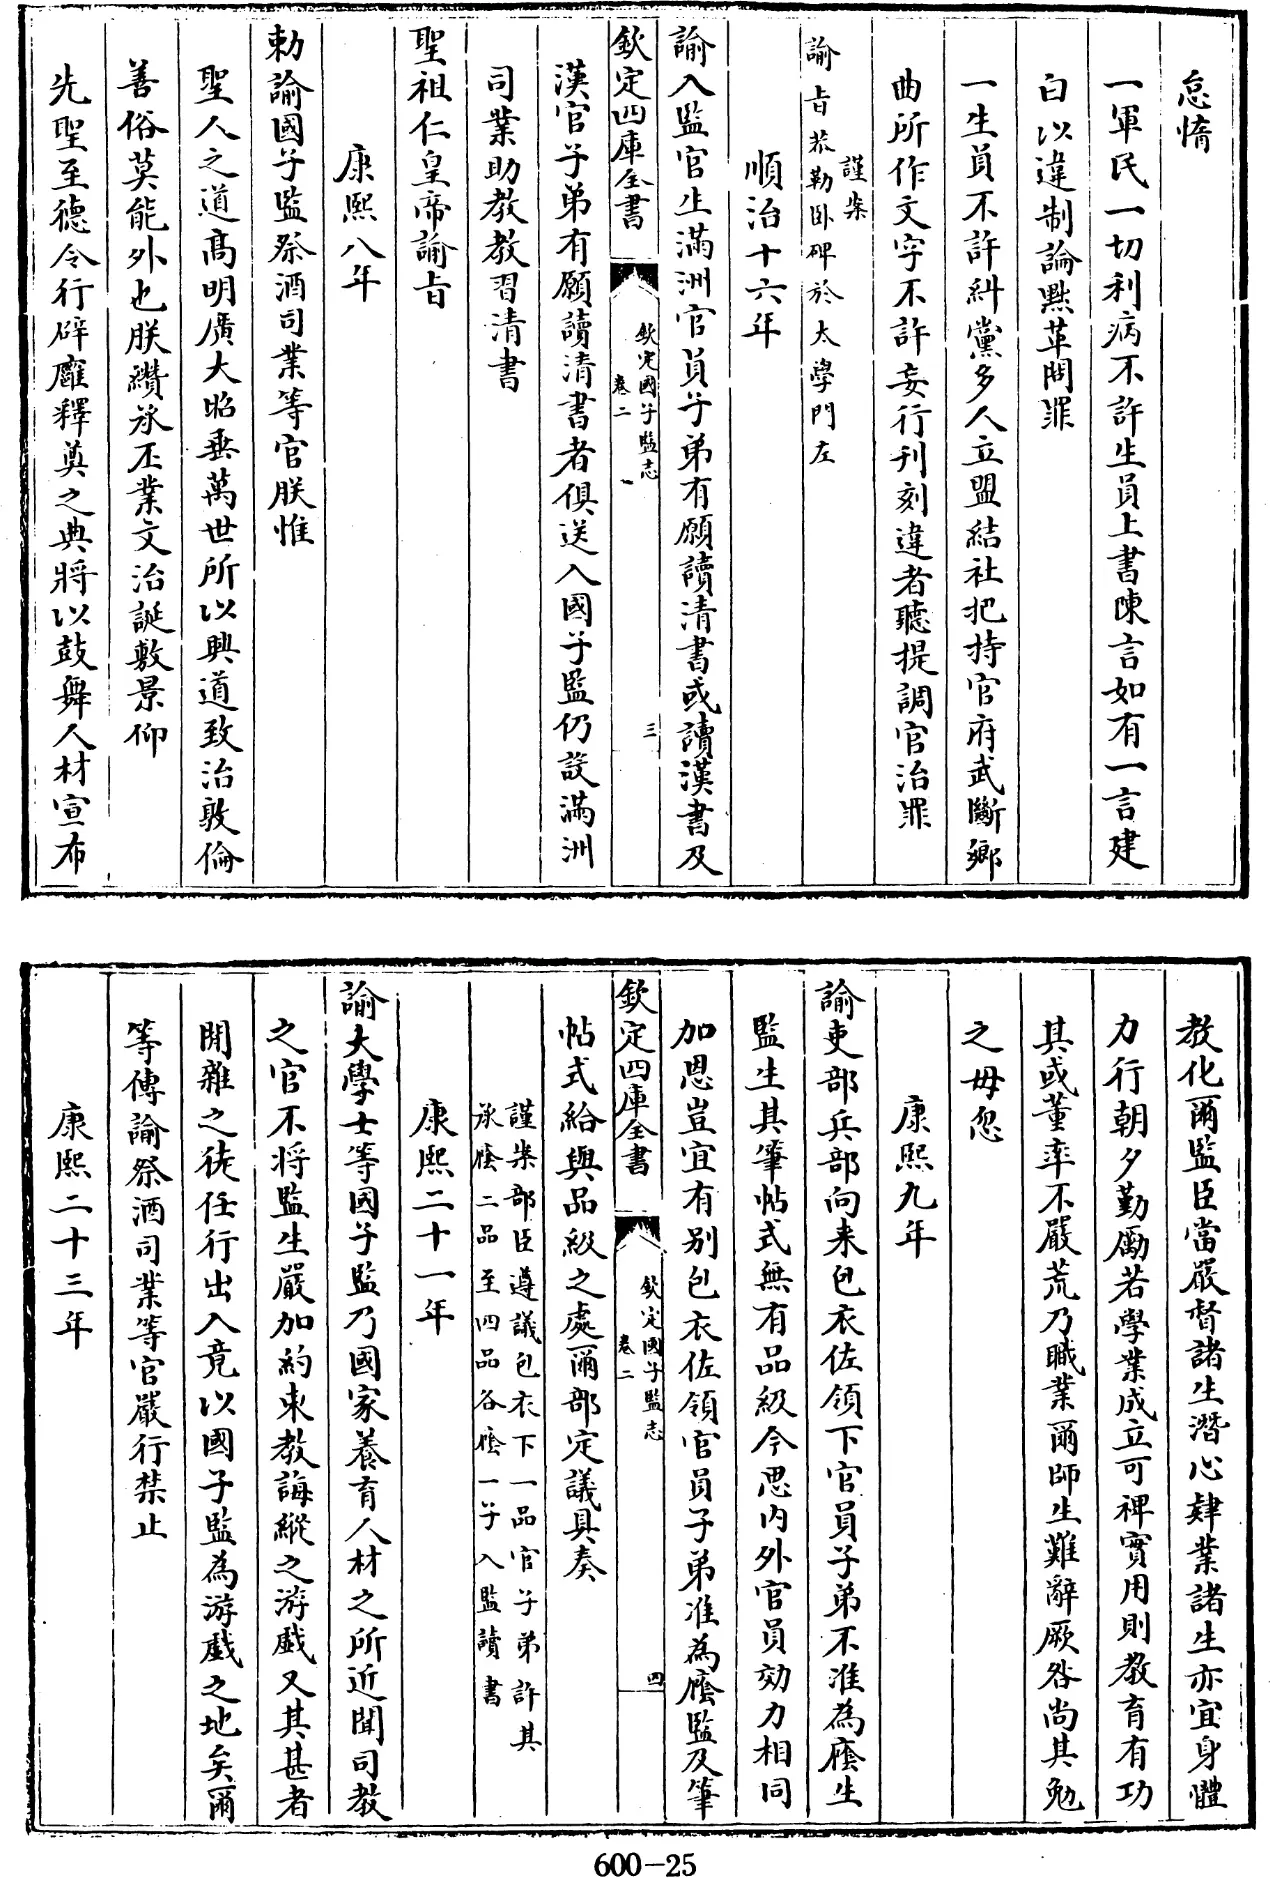 怠惰
一軍民一切利病不許生員上書陳言如有一言建
白以違制論黜革問罪
一生員不許糾黨多人立盟結社把持官府武斷鄉
曲所作文字不許妄行刊刻違者聽提調官治罪
謹案
諭旨恭勒卧碑於太學門左
順治十六年
諭入監官生滿洲官員子弟有願讀清書或讀漢書及
欽定四庫全書
欽定國子監志
卷二
三
漢官子弟有願讀清書者俱送入國子監仍設滿洲
司業助教教習清書
聖祖仁皇帝諭旨
康熙八年
勅諭國子監祭酒司業等官朕惟
聖人之道高明廣大昭垂萬世所以興道致治敦倫
善俗莫能外也朕纘承丕業文治誕敷景仰
先聖至德令行辟廱釋奠之典將以鼓舞人材宣布
教化爾監臣當嚴督諸生潛心肄業諸生亦宜身體
力行朝夕勤勵若學業成立可裨實用則教育有功
其或董率不嚴荒乃職業爾師生難辭厥咎尚其勉
之毋忽
康熙九年
諭吏部兵部向来包衣佐領下官員子弟不准為廕生
監生其筆帖式無有品級今思内外官員効力相同
加恩豈宜有别包衣佐領官員子弟准為廕監及筆
欽定四庫全書
欽定國子監志
卷二
四
帖式給與品級之處爾部定議具奏
謹案部臣遵議包衣下一品官子弟許其
承廕二品至四品各廕一子入監讀書
康熙二十一年
諭大學士等國子監乃國家養育人材之所近聞司教
之官不将監生嚴加約束教誨縱之游戲又其甚者
閒雜之徒任行出入竟以國子監為游戲之地矣爾
等傳諭祭酒司業等官嚴行禁止
康熙二十三年
600-25